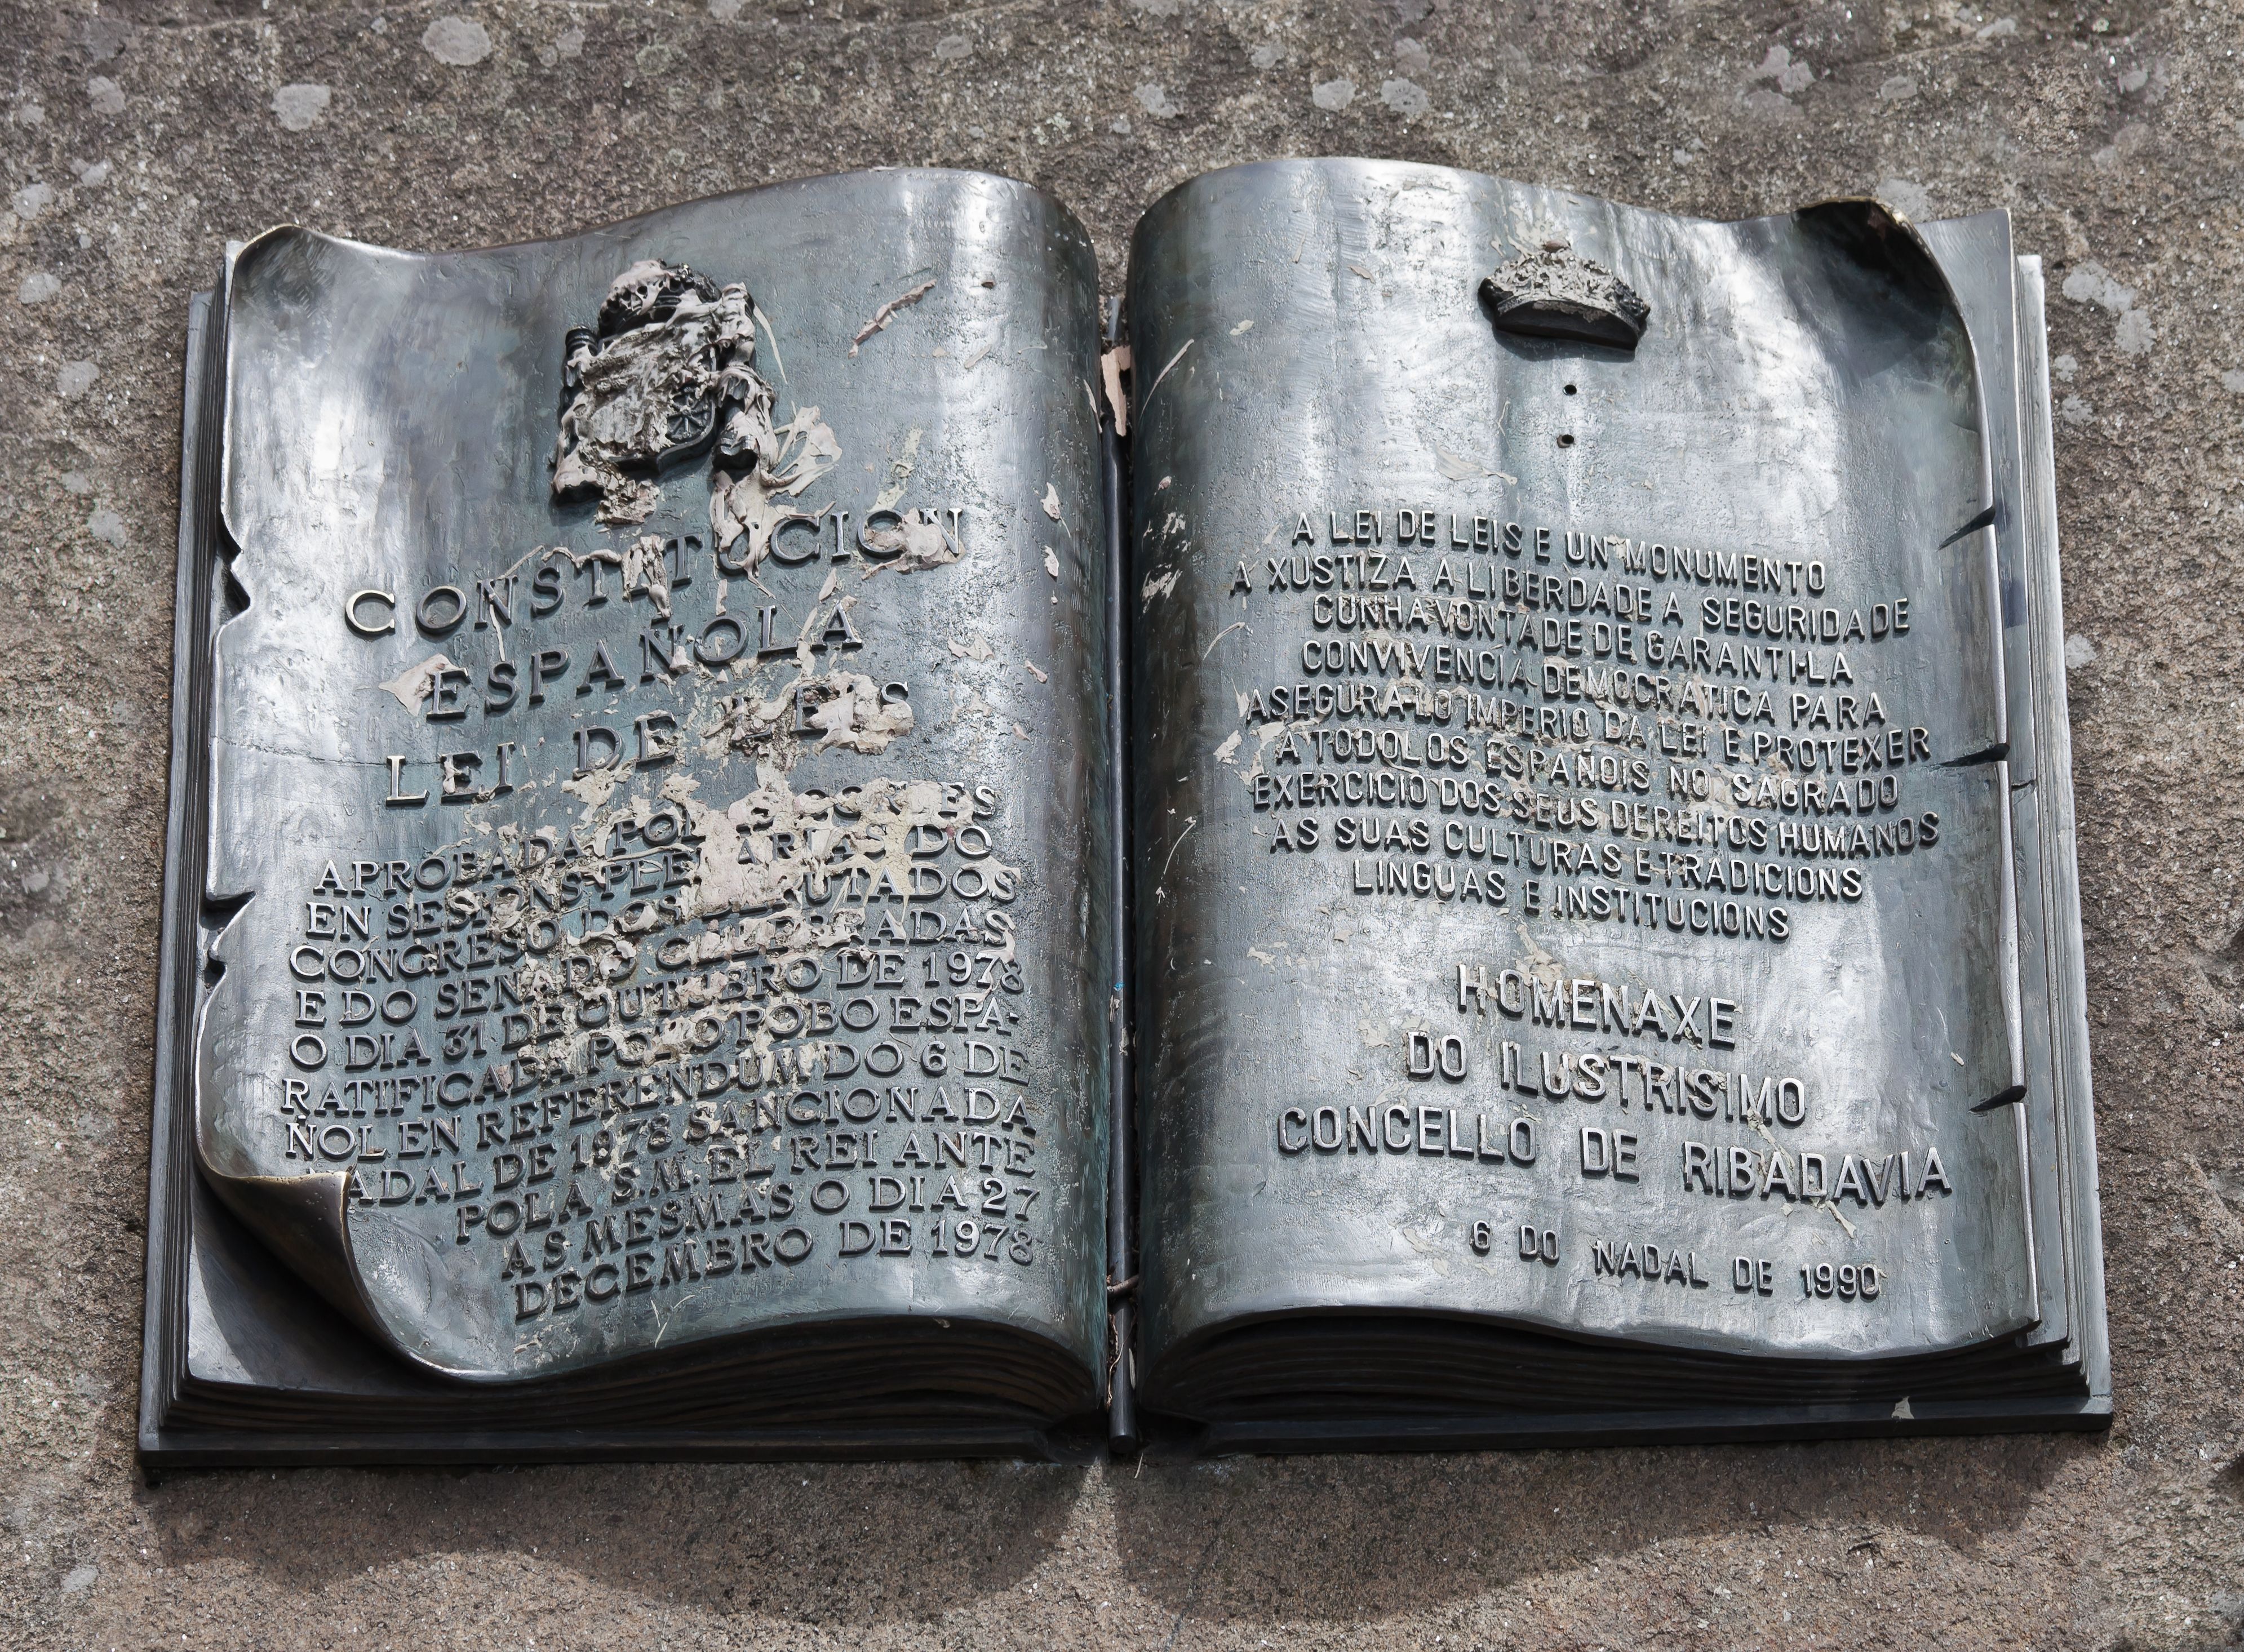 CONSTITUCION
ESPAÑOLA
LEI DE LEIS
APROBADA POLAS CORTES
EN SESIONS PLENARIAS DO
CONGRESO DOS DEPUTADOS
E DO SENADO CELEBRADAS
O DIA 31 DE OUTUBRO DE 1978
RATIFICADA POLO POBO ESPA-
ÑOL EN REFERENDUM DO 6 DE
NADAL DE 1978 SANCIONADA
POLA S.M. EL REI ANTE
AS MESMAS O DIA 27
DECEMBRO DE 1978
A LEI DE LEIS E UN MONUMENTO
A XUSTIZA A LIBERDADE A SEGURIDADE
CUNHA VONTADE DE GARANTI-LA
CONVIVENCIA DEMOCRATICA PARA
ASEGURA-LO IMPERIO DA LEI E PROTEXER
A TODOLOS ESPAÑOIS NO SAGRADO
EXERCICIO DOS SEUS DEREITOS HUMANOS
AS SUAS CULTURAS E TRADICIONS
LINGUAS E INSTITUCIONS
HOMENAXE
DO ILUSTRISIMO
CONCELLO DE RIBADAVIA
6 DO NADAL DE 1990